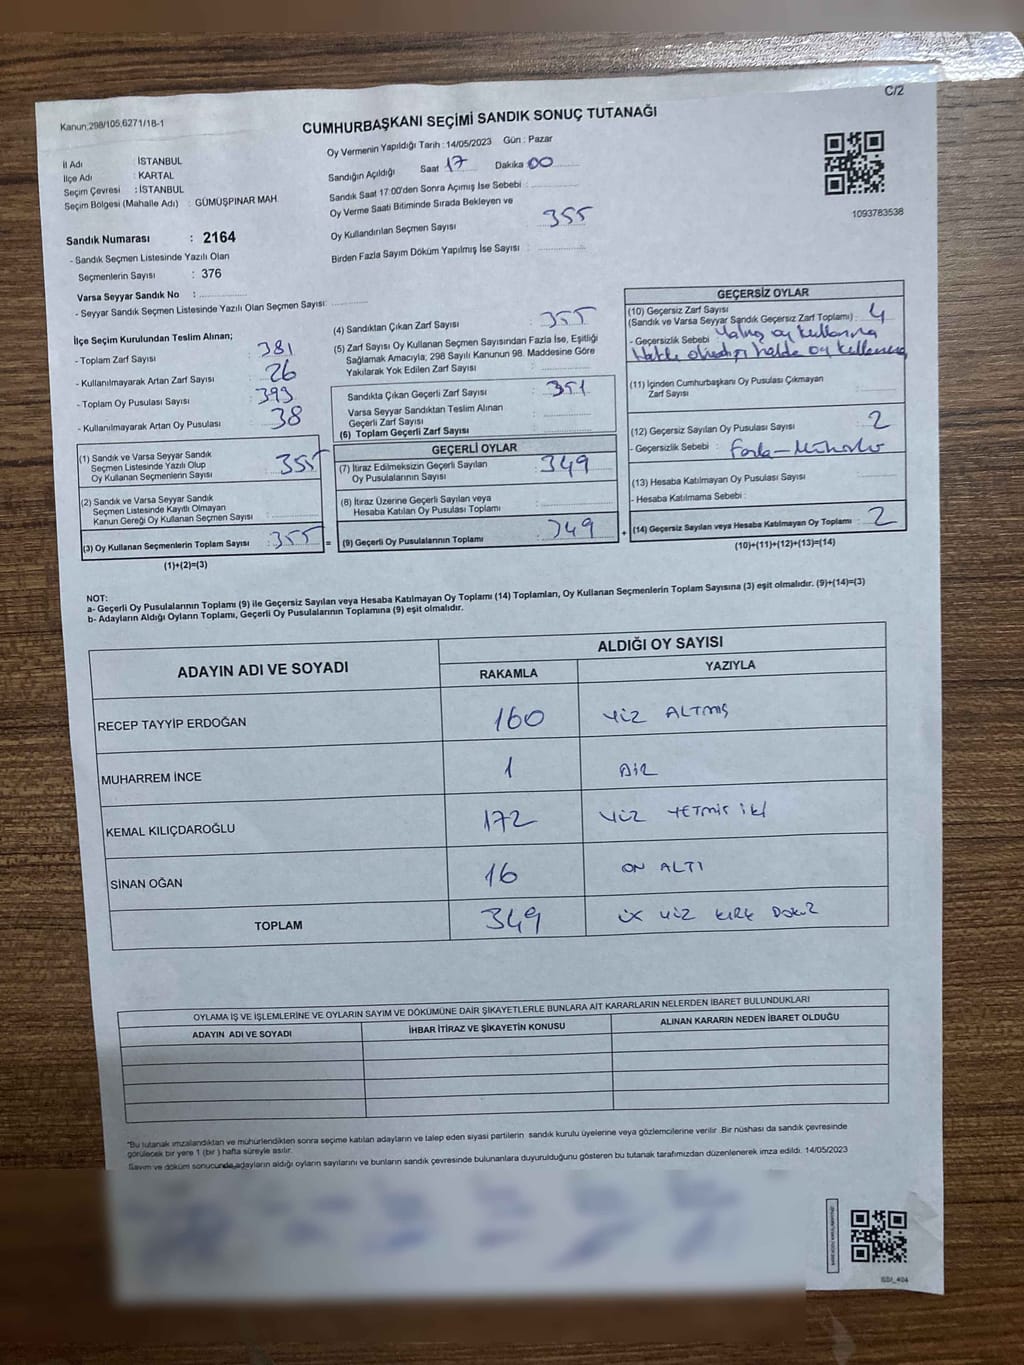 C/2
Kanun:298/105,6271/18-1
CUMHURBAŞKANI SEÇİMİ SANDIK SONUÇ TUTANAĞI
Oy Vermenin Yapıldığı Tarih : 14/05/2023 Gün : Pazar
İl Adı : İSTANBUL
İlçe Adı : KARTAL
Seçim Çevresi : İSTANBUL
Seçim Bölgesi (Mahalle Adı) : GÜMÜŞPINAR MAH.
Sandık Numarası : 2164
- Sandık Seçmen Listesinde Yazılı Olan
Seçmenlerin Sayısı : 376
Varsa Seyyar Sandık No :
- Seyyar Sandık Seçmen Listesinde Yazılı Olan Seçmen Sayısı:
Sandığın Açıldığı Saat 17 Dakika 00
Sandık Saat 17:00'den Sonra Açımış İse Sebebi :
Oy Verme Saati Bitiminde Sırada Bekleyen ve
Oy Kullandırılan Seçmen Sayısı 355
Birden Fazla Sayım Döküm Yapılmış İse Sayısı :
1093783538
İlçe Seçim Kurulundan Teslim Alınan;
- Toplam Zarf Sayısı : 381
- Kullanılmayarak Artan Zarf Sayısı : 26
- Toplam Oy Pusulası Sayısı : 393
- Kullanılmayarak Artan Oy Pusulası : 38
(1) Sandık ve Varsa Seyyar Sandık
Seçmen Listesinde Yazılı Olup
Oy Kullanan Seçmenlerin Sayısı : 355
(2) Sandık ve Varsa Seyyar Sandık
Seçmen Listesinde Kayıtlı Olmayan
Kanun Gereği Oy Kullanan Seçmen Sayısı :
(3) Oy Kullanan Seçmenlerin Toplam Sayısı : 355 =
(1)+(2)=(3)
(4) Sandıktan Çıkan Zarf Sayısı : 355
(5) Zarf Sayısı Oy Kullanan Seçmen Sayısından Fazla İse, Eşitliği
Sağlamak Amacıyla, 298 Sayılı Kanunun 98. Maddesine Göre
Yakılarak Yok Edilen Zarf Sayısı :
Sandıkta Çıkan Geçerli Zarf Sayısı : 351
Varsa Seyyar Sandıktan Teslim Alınan
Geçerli Zarf Sayısı :
(6) Toplam Geçerli Zarf Sayısı :
GEÇERLİ OYLAR
(7) İtiraz Edilmeksizin Geçerli Sayılan
Oy Pusulalarının Sayısı : 349
(8) İtiraz Üzerine Geçerli Sayılan veya
Hesaba Katılan Oy Pusulası Toplamı :
(9) Geçerli Oy Pusulalarının Toplamı : 349 +
GEÇERSİZ OYLAR
(10) Geçersiz Zarf Sayısı
(Sandık ve Varsa Seyyar Sandık Geçersiz Zarf Toplamı) : 4
- Geçersizlik Sebebi : Yalnız oy kullanma
Hakkı olmadığı halde oy kullanması
(11) İçinden Cumhurbaşkanı Oy Pusulası Çıkmayan
Zarf Sayısı :
(12) Geçersiz Sayılan Oy Pusulası Sayısı : 2
- Geçersizlik Sebebi : Fazla-Mühürlü
(13) Hesaba Katılmayan Oy Pusulası Sayısı :
- Hesaba Katılmama Sebebi :
(14) Geçersiz Sayılan veya Hesaba Katılmayan Oy Toplamı : 2
(10)+(11)+(12)+(13)=(14)
NOT:
a- Geçerli Oy Pusulalarının Toplamı (9) ile Geçersiz Sayılan veya Hesaba Katılmayan Oy Toplamı (14) Toplamları, Oy Kullanan Seçmenlerin Toplam Sayısına (3) eşit olmalıdır. (9)+(14)=(3)
b- Adayların Aldığı Oyların Toplamı, Geçerli Oy Pusulalarının Toplamına (9) eşit olmalıdır.
ADAYIN ADI VE SOYADI ALDIĞI OY SAYISI
RAKAMLA YAZIYLA
RECEP TAYYİP ERDOĞAN 160 YÜZ ALTMIŞ
MUHARREM İNCE 1 BİR
KEMAL KILIÇDAROĞLU 172 YÜZ YETMİŞ İKİ
SİNAN OĞAN 16 ON ALTI
TOPLAM 349 ÜÇ YÜZ KIRK DOKUZ
OYLAMA İŞ VE İŞLEMLERİNE VE OYLARIN SAYIM VE DÖKÜMÜNE DAİR ŞİKAYETLERLE BUNLARA AİT KARARLARIN NELERDEN İBARET BULUNDUKLARI
ADAYIN ADI VE SOYADI İHBAR İTİRAZ VE ŞİKAYETİN KONUSU ALINAN KARARIN NEDEN İBARET OLDUĞU
*Bu tutanak imzalandıktan ve mühürlendikten sonra seçime katılan adayların ve talep eden siyasi partilerin sandık kurulu üyelerine veya gözlemcilerine verilir .Bir nüshası da sandık çevresinde
görülecek bir yere 1 (bir ) hafta süreyle asılır.
Sayım ve döküm sonucunda,adayların aldığı oyların sayılarını ve bunların sandık çevresinde bulunanlara duyurulduğunu gösteren bu tutanak tarafımızdan düzenlenerek imza edildi. 14/05/2023